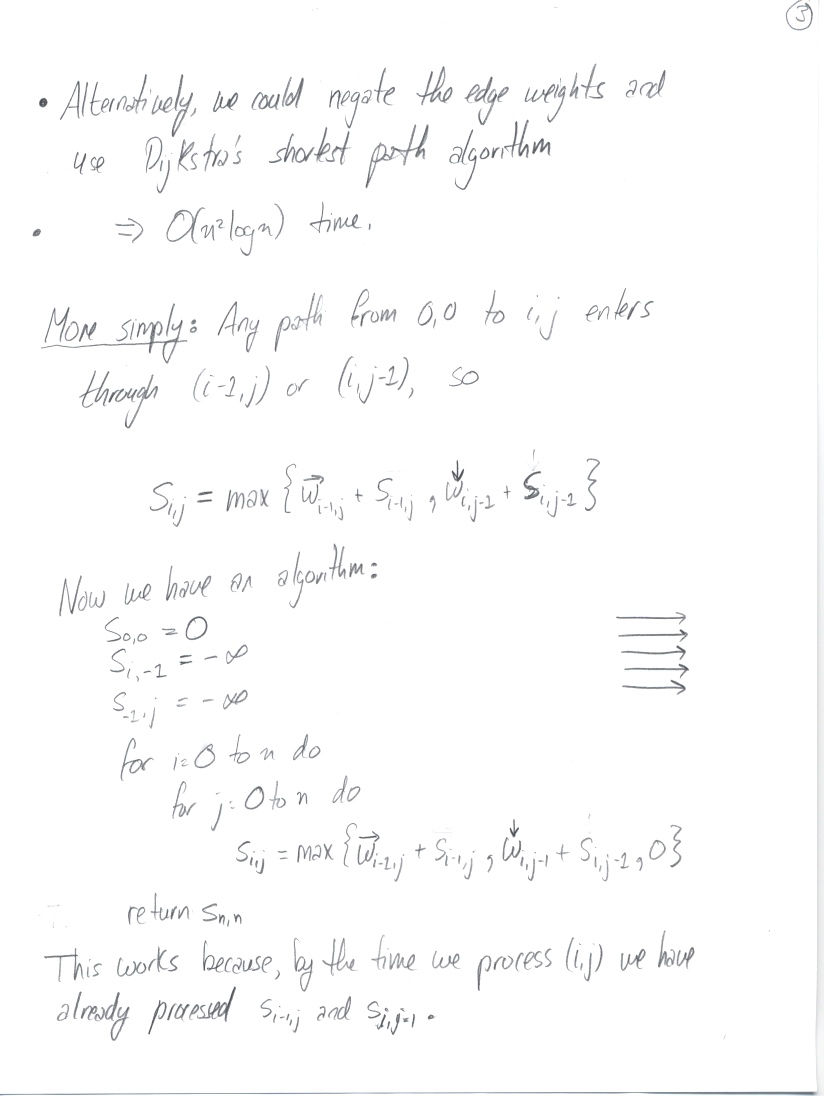 3
• Alternatively, we could negate the edge weights and
use Dijkstra's shortest path algorithm
• ⇒ O(n² log n) time.
More simply: Any path from 0,0 to i,j enters
through (i-1,j) or (i,j-1), so
S_{i,j} = max { \vec{w}_{i-1,j} + S_{i-1,j} , w^↓_{i,j-1} + S_{i,j-1} }
Now we have an algorithm:
S_{0,0} = 0
S_{i,-1} = -∞
S_{-1,j} = -∞
for i=0 to n do
for j=0 to n do
S_{i,j} = max { \vec{w}_{i-1,j} + S_{i-1,j} , w^↓_{i,j-1} + S_{i,j-1} , 0 }
return S_{n,n}
This works because, by the time we process (i,j) we have
already processed S_{i-1,j} and S_{i,j-1}.